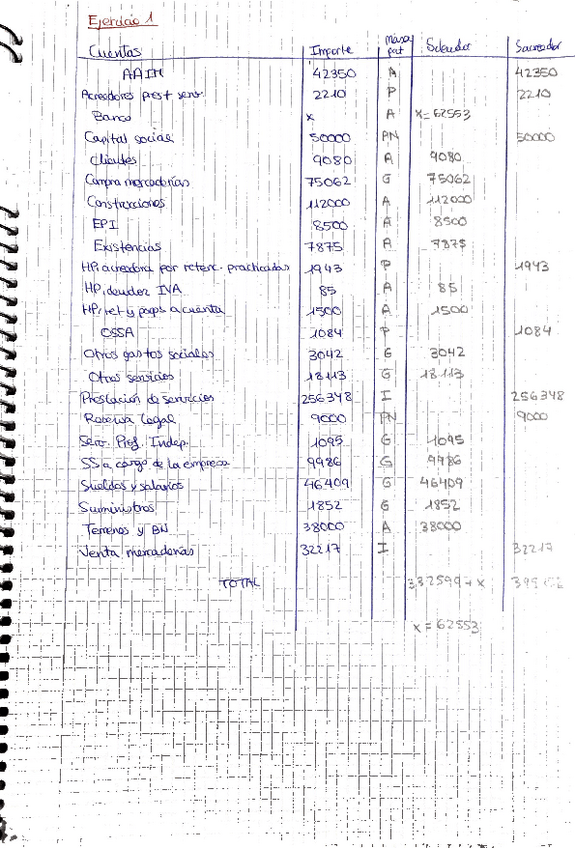 Ejercicio 1
Cuentas Importe masa pat Sdeudor Sacreedor
AAIM 42350 A 42350
Acreedores prest serv. 2210 P 2210
Banco x A x=62553
Capital social 50000 PN 50000
Clientes 9080 A 9080
Compra mercaderías 75062 G 75062
Construcciones 112000 A 112000
EPI 8500 A 8500
Existencias 7875 A 7875
HP, acreedora por retenc. practicadas 1943 P 1943
HP, deudor IVA 85 A 85
HP, ret y pagos a cuenta 1500 A 1500
OSSA 1084 P 1084
Otros gastos sociales 3042 G 3042
Otros servicios 18113 G 18113
Prestación de servicios 256348 I 256348
Reserva Legal 9000 PN 9000
Serv. Prof. Indep. 1095 G 1095
SS a cargo de la empresa 9986 G 9986
Sueldos y salarios 46409 G 46409
Suministros 1852 G 1852
Terrenos y BN 38000 A 38000
Venta mercaderías 32217 I 32217
TOTAL 332599+x
x=62553